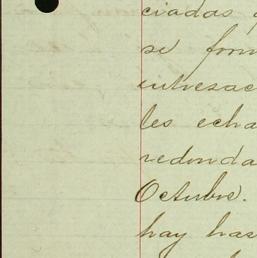 ciadas
se form
intresac
les echa
redonda
Octubre.
hay has